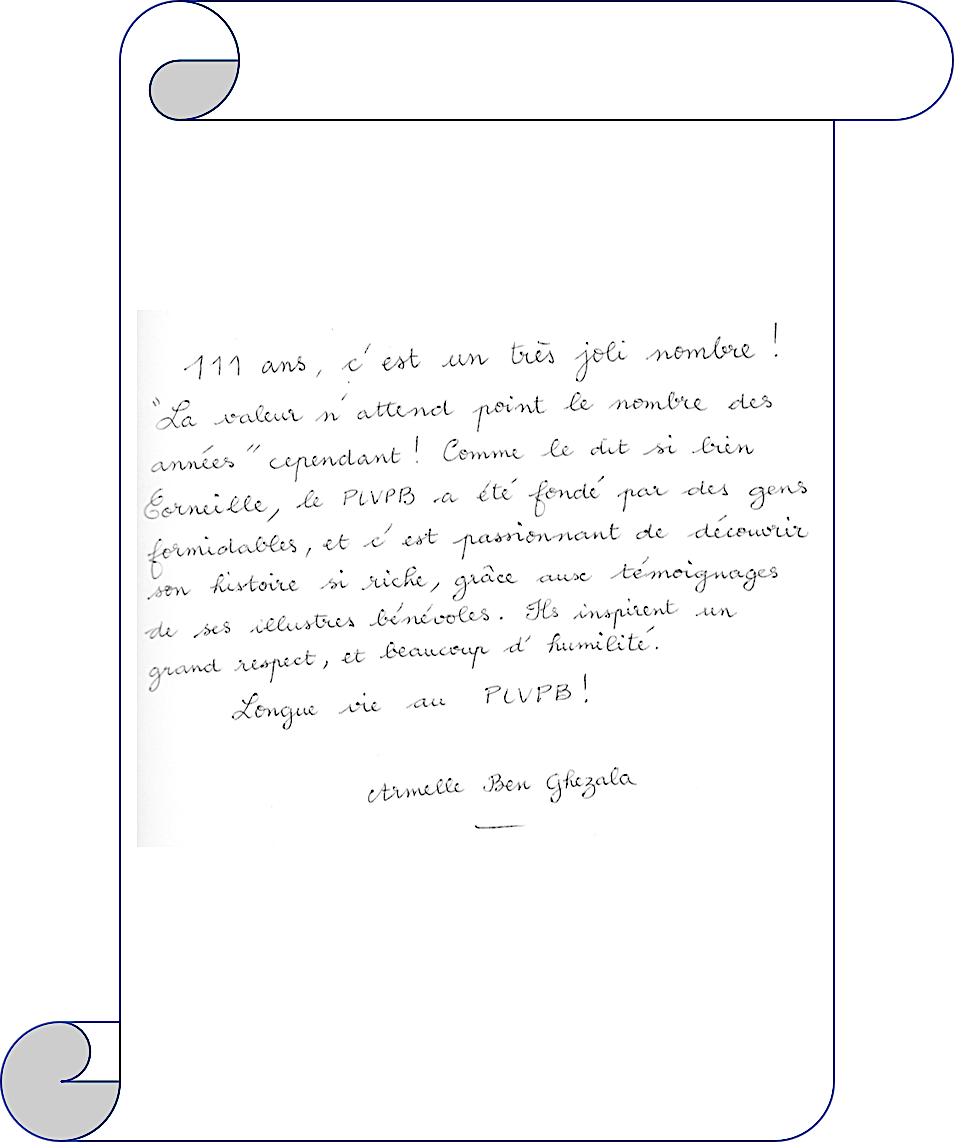 111 ans, c'est un très joli nombre !
"La valeur n'attend point le nombre des
années" cependant ! Comme le dit si bien
Corneille, le PLVPB a été fondé par des gens
formidables, et c'est passionnant de découvrir
son histoire si riche, grâce aux témoignages
de ses illustres bénévoles. Ils inspirent un
grand respect, et beaucoup d'humilité.
Longue vie au PLVPB !
Armelle Ben Ghezala